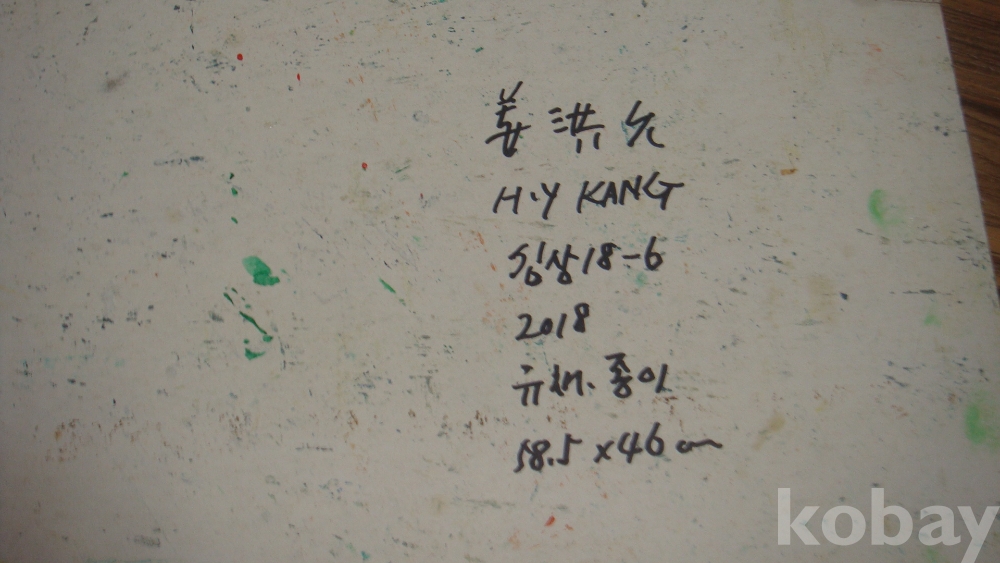 姜洪允
H.Y KANG
심상18-6
2018
유채. 종이
58.5 x 46 cm
kobay